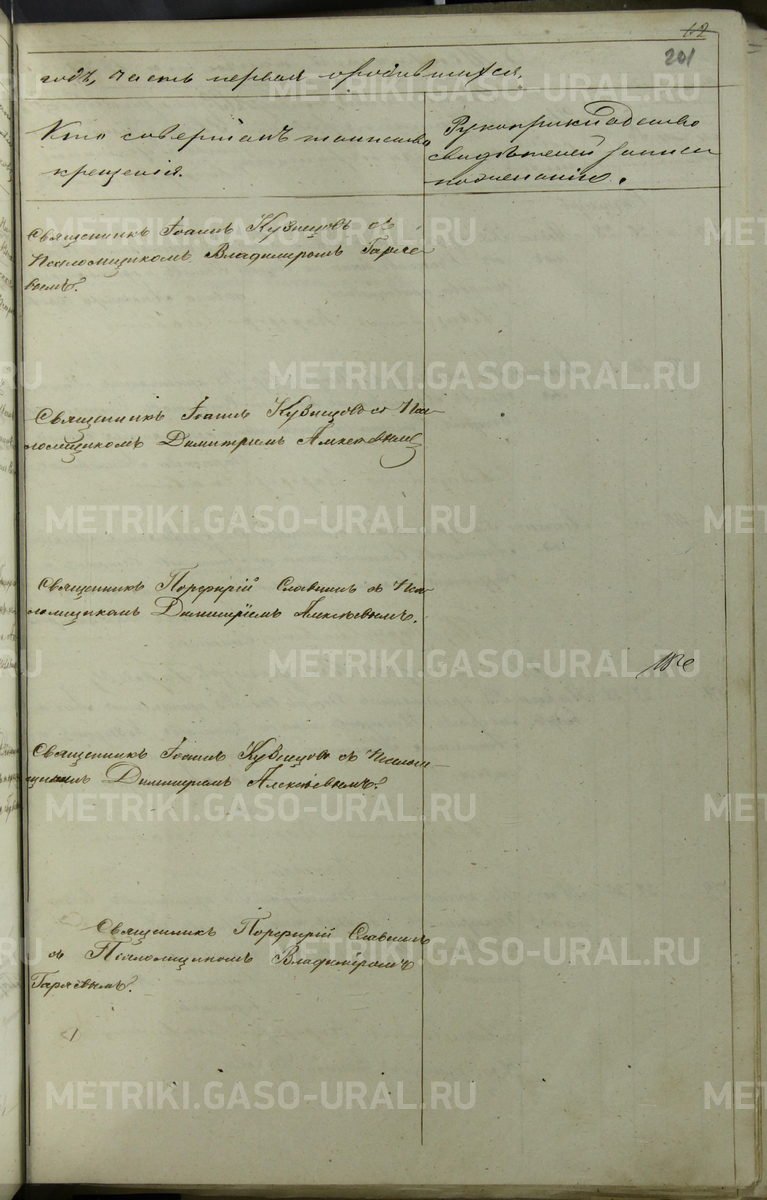 62
201
годѣ, часть первая о родившихся.
Кто совершалъ таинство
крещенія.
Рукоприкладство
свидѣтелей записи
по желанію.
Священникъ Іоаннъ Кузнецовъ съ
Псаломщикомъ Владиміромъ Гаряе-
вымъ.
Священникъ Іоаннъ Кузнецовъ съ Пса-
ломщикомъ Димитріемъ Алексѣевымъ
Священникъ Порфирій Славнинъ съ Пса-
ломщикомъ Димитріемъ Алексѣевымъ.
Священникъ Іоаннъ Кузнецовъ съ Псалом-
щикомъ Димитріемъ Алексѣевымъ.
Священникъ Порфирій Славнинъ
съ Псаломщикомъ Владиміромъ
Гаряевымъ.
METRIKI.GASO-URAL.RU